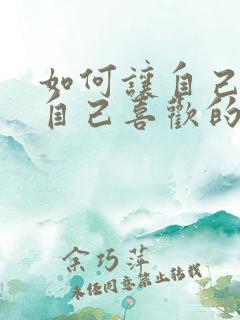 如何讓自己
自己喜歡的
余巧萍
未經同意禁止轉載